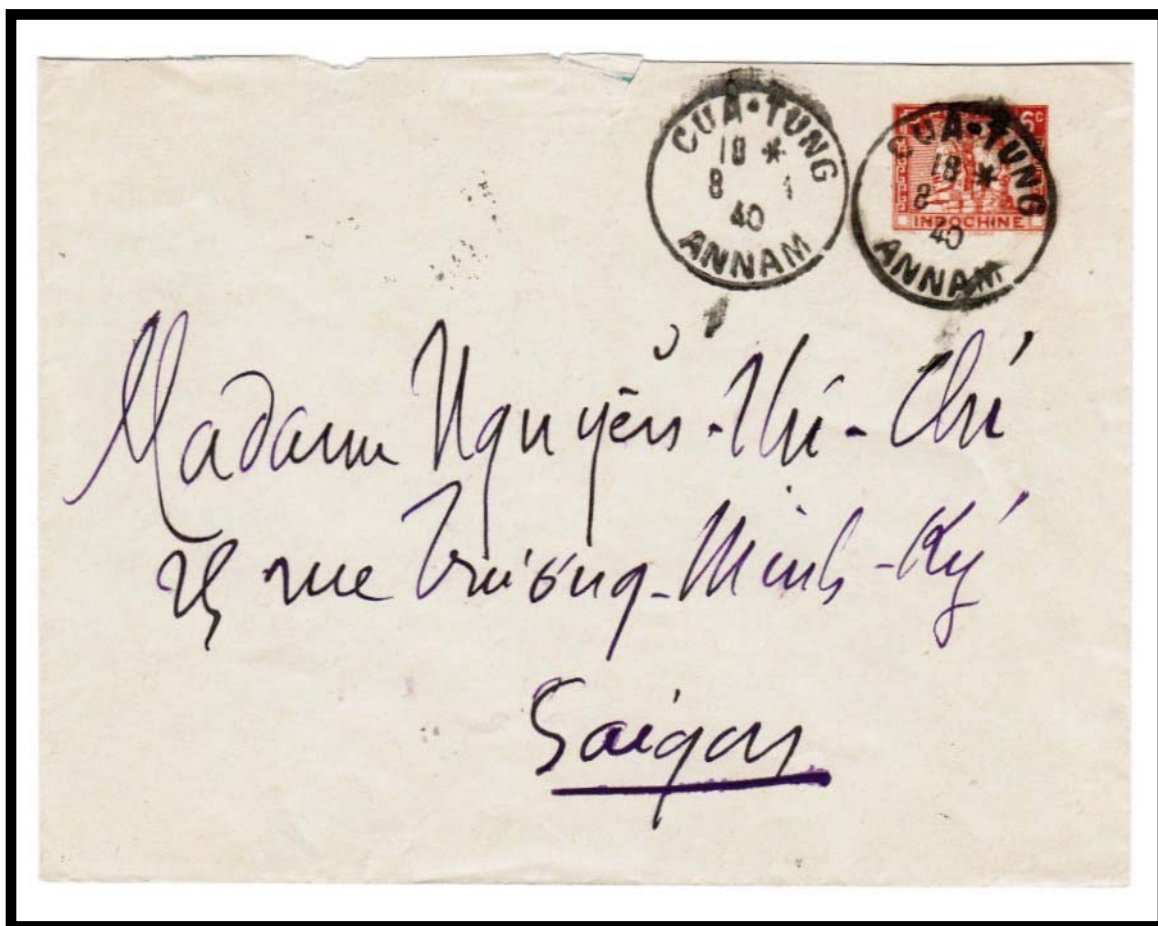 CUA•TUNG
18 *
8 1
40
ANNAM
6c
INDOCHINE
CUA•TUNG
18 *
8
40
ANNAM
Madame Nguyễn-Thi-Chí
rue Trương-Minh-Ký
Saigon